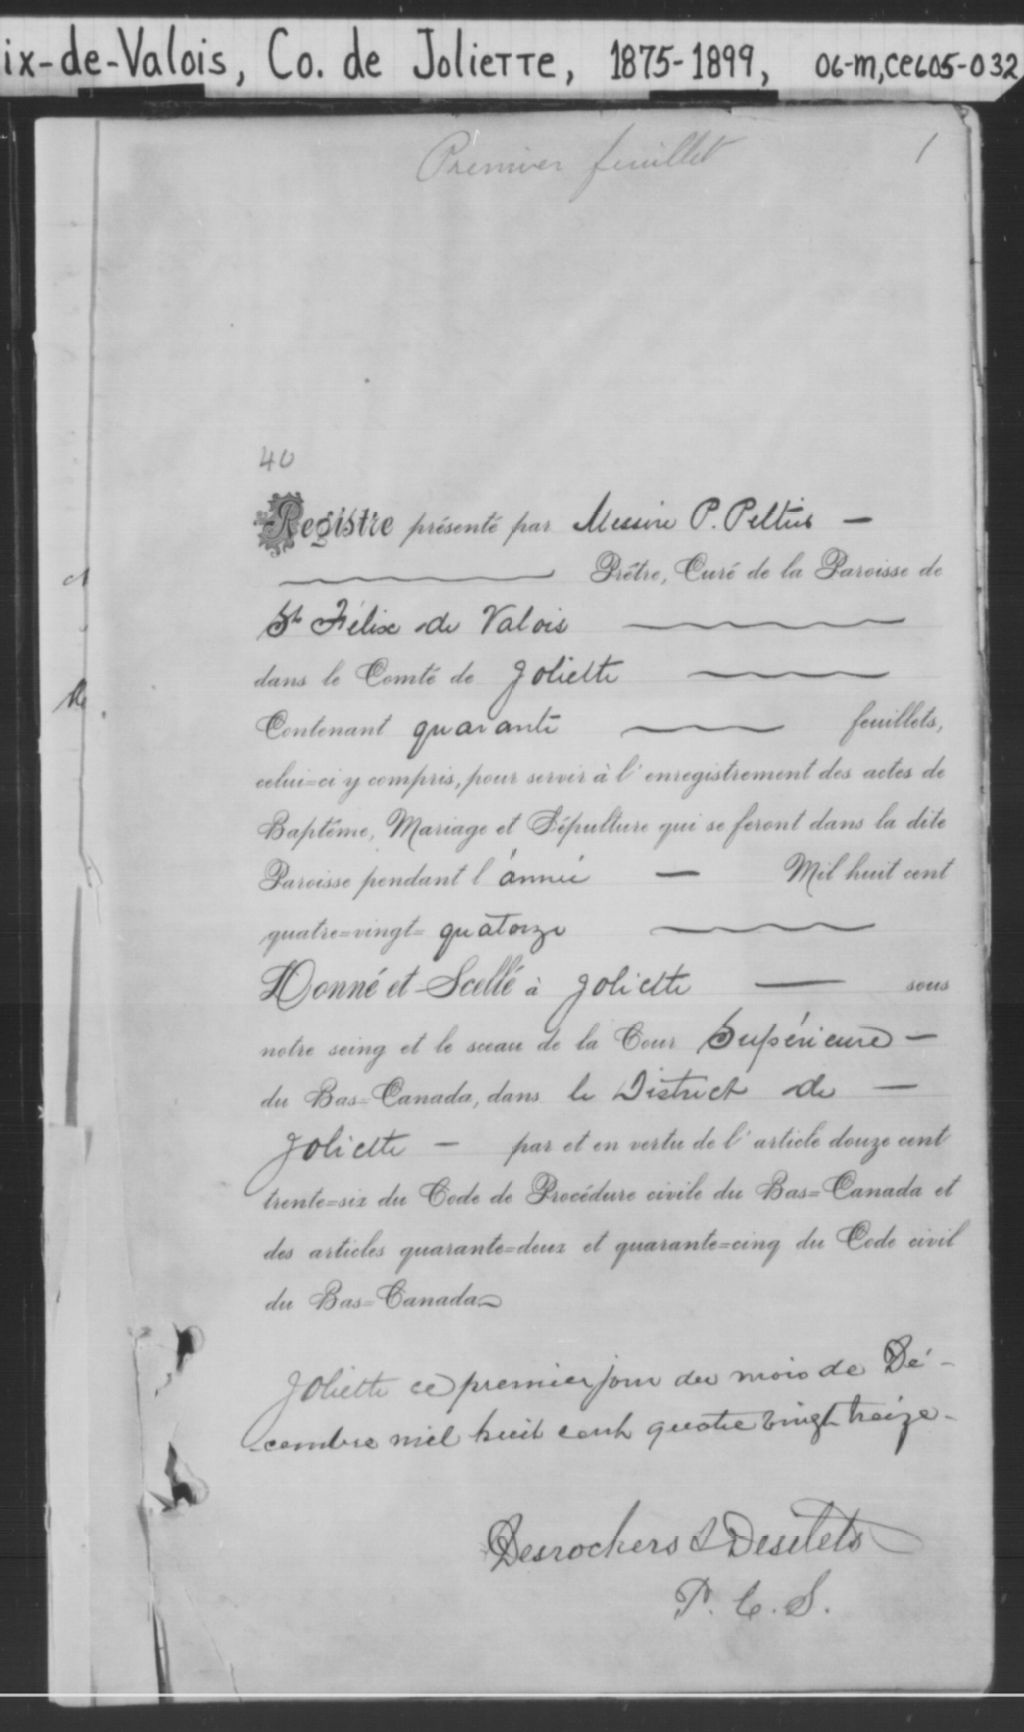 ix-de-Valois, Co. de Joliette, 1875-1899, 06-m,CE605-032
Premier feuillet 1
40
Registre présenté par Messire P. Peltier —
Prêtre, Curé de la Paroisse de
St Félix de Valois
dans le Comté de Joliette
Contenant quarante feuillets,
celui=ci y compris, pour servir à l'enregistrement des actes de
Baptême, Mariage et Sépulture qui se feront dans la dite
Paroisse pendant l'année — Mil huit cent
quatre=vingt= quatorze
Donné et Scellé à Joliette — sous
notre seing et le sceau de la Cour Supérieure —
du Bas=Canada, dans le District de —
Joliette — par et en vertu de l'article douze cent
trente=six du Code de Procédure civile du Bas=Canada et
des articles quarante=deux et quarante=cinq du Code civil
du Bas=Canada
Joliette ce premier jour du mois de Dé-
-cembre mil huit cent quatre vingt treize-
Desrochers & Desilets
P. C. S.